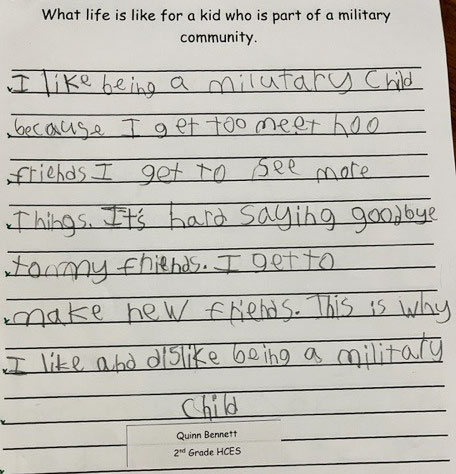 What life is like for a kid who is part of a military
community.
I like being a milutary Child
because I get too meet hoo
friends I get to see more
Things. It's hard saying goodbye
to my friends. I get to
make new friends. This is why
I like and dislike being a military
child
Quinn Bennett
2nd Grade HCES